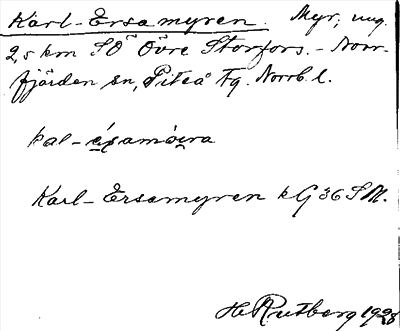 Karl-Ersamyren. Myr, ung.
2,5 km SO Övre Storfors. - Norr-
fjärden sn, Piteå Fg. Norrb. l.
Karl-Ersamyren kG 36 S M.
H Rutberg 1928